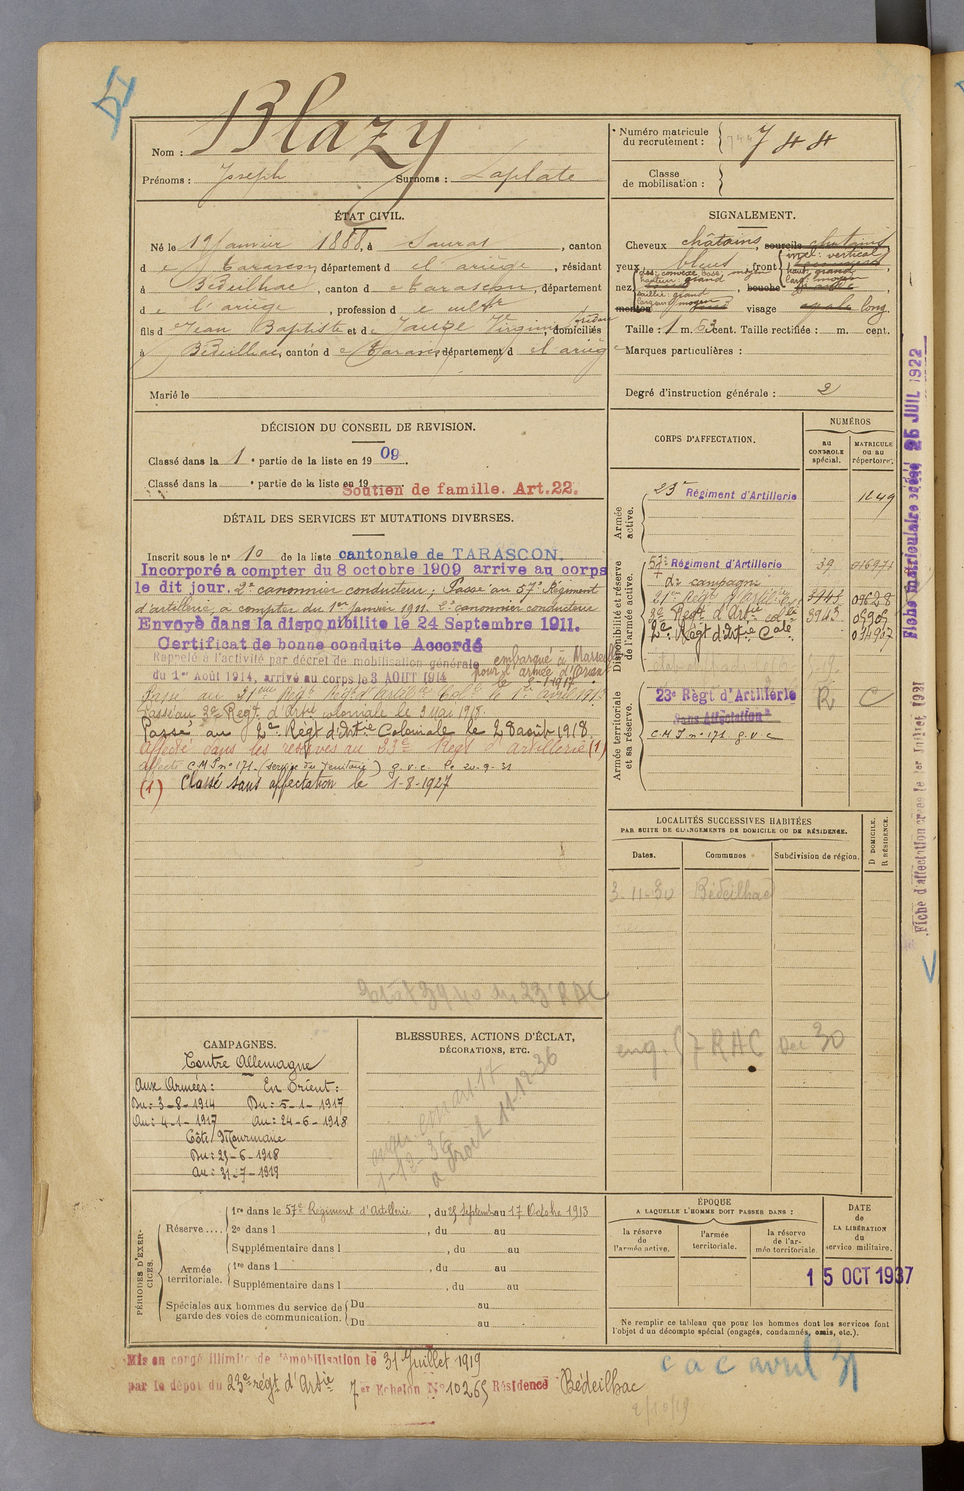 51
Nom : Blazy
Prénoms : Joseph Surnoms : Laplate
Numéro matricule du recrutement : 744
Classe de mobilisation :
ÉTAT CIVIL.
Né le 19 Janvier 1888, à Saurat, canton
de Tarascon, département de l'ariège, résidant
à Bédeilhac, canton de Tarascon, département
de l'ariège, profession de cultr
fils de Jean Baptiste et de Virginie, domiciliés
à Bédeilhac, canton de Tarascon, département de l'ariège
Marié le
SIGNALEMENT.
Cheveux châtains, sourcils châtains
yeux bleus, front
incl: vertical
haut: grand
larg: moyen
nez
dos: convexe base: moyen
hauteur: grand
saillie: grand
largeur: moyen
bouche
menton visage ovale long
Taille : 1 m. 63 cent. Taille rectifiée : m. cent.
Marques particulières :
Degré d'instruction générale : 2
DÉCISION DU CONSEIL DE REVISION.
Classé dans la 1e partie de la liste en 1909.
Classé dans la e partie de la liste en 19
Soutien de famille. Art.22.
DÉTAIL DES SERVICES ET MUTATIONS DIVERSES.
Inscrit sous le n° 10 de la liste cantonale de TARASCON.
Incorporé a compter du 8 octobre 1909 arrive au corps
le dit jour. 2e canonnier conducteur; Passé au 57e Régiment
d'artillerie, à compter du 1er Janvier 1911. 2e canonnier conducteur
Envoyé dans la disponibilite le 24 Septembre 1911.
Certificat de bonne conduite Accordé
Rappelé à l'activité par décret de mobilisation générale
du 1er Août 1914, arrivé au corps le 3 AOUT 1914
embarqué à Marseille
pour l'armée d'Orient
le 5-1-1917
Passé au 21eme Régt d'Artie Cole le 1er avril 1918
Passé au 3e Regt. d'Artie coloniale le 3 Mai 1918.
Passé au 2e Régt d'Artie Coloniale le 28 août 1918.
Affecté dans les réserves au 23e Regt d'Artillerie (1)
affecté C.M.J n° 171. (service du Territoire) g.v.c. le 20-9-31
(1) Classé sans affectation le 1-8-1927
CORPS D'AFFECTATION.
NUMÉROS
AU CONTROLE spécial.
MATRICULE ou au répertoire.
Armée active.
23e Régiment d'Artillerie 1249
Disponibilité et réserve de l'armée active.
57e Régiment d'Artillerie 39 016971
de campagne
21er Regt d'Artie 09628
3e Regt d'Artie cole 3943 05909
2e Régt d'Artie Cole.
Armée territoriale et sa réserve.
23e Règt d'Artillerie R C
Sans Affectation
C.M.J n° 171. g.v.c
LOCALITÉS SUCCESSIVES HABITÉES
PAR SUITE DE CHANGEMENTS DE DOMICILE OU DE RÉSIDENCE.
Dates. Communes Subdivision de région. D DOMICILE. R RÉSIDENCE.
3-11-30 Bédeilhac
eng. 57 RAC Dec 30
CAMPAGNES.
Contre Allemagne
Aux Armées : En Orient :
Du: 3-8-1914 Du: 5-1-1917
Au: 4-1-1917 Au: 24-6-1918
Côte Mourmane
Du: 25-6-1918
Au: 31-7-1919
BLESSURES, ACTIONS D'ÉCLAT,
DÉCORATIONS, ETC.
PÉRIODES D'EXERCICES.
Réserve....
1re dans le 57e Régiment d'Artillerie, du 25 Septembre au 17 Octobre 1913
2e dans l, du au
Supplémentaire dans l, du au
Armée territoriale.
1re dans l, du au
Supplémentaire dans l, du au
Spéciales aux hommes du service de garde des voies de communication.
Du au
Du au
ÉPOQUE
A LAQUELLE L'HOMME DOIT PASSER DANS :
la réserve de l'armée active.
l'armée territoriale.
la réserve de l'armée territoriale
DATE de LA LIBÉRATION du service militaire.
15 OCT 1937
Ne remplir ce tableau que pour les hommes dont les services font
l'objet d'un décompte spécial (engagés, condamnés, omis, etc.).
Mis en congé illimité de démobilisation le 31 Juillet 1919
par le dépôt du 23e régt d'Artie 7em Echelon N° 10265 Résidence Bédeilhac
c a c avril 31
Fiche matriculaire créée 25 JUIL 1922
Fiche d'affectation créée le 1er Juillet 1931